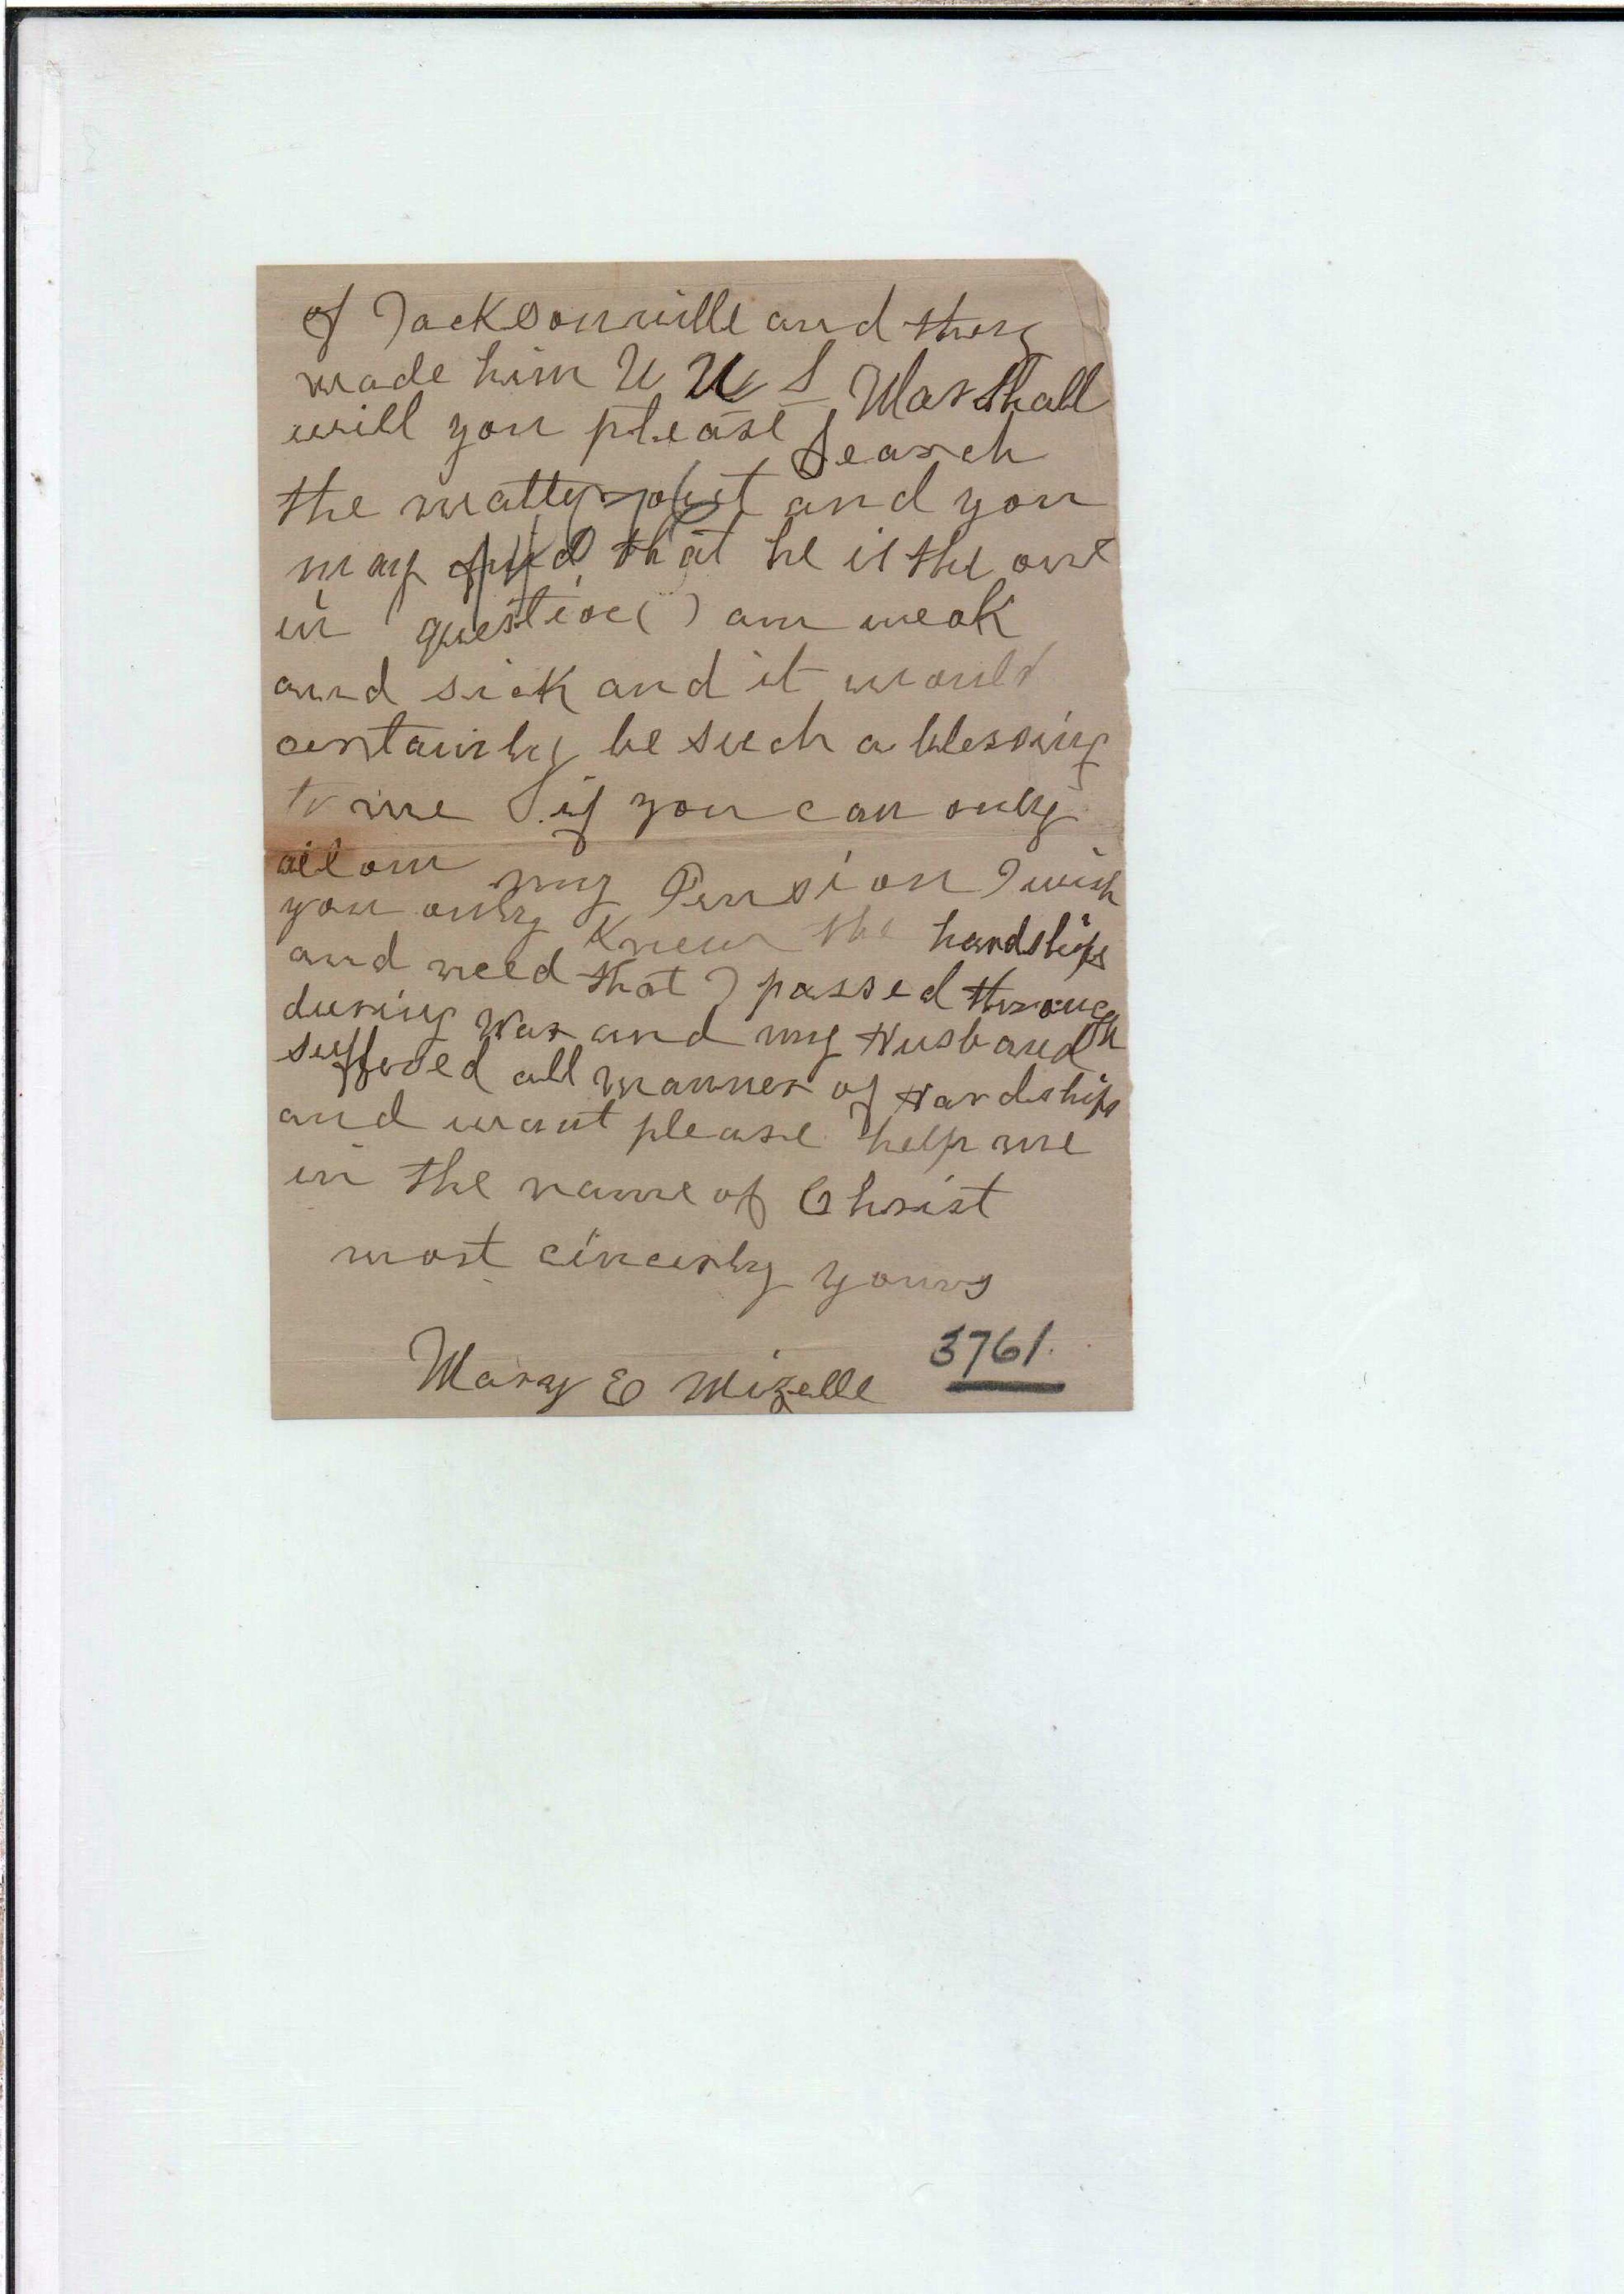 of Jacksonville and they
made him U U S Marshall
will you please Search
the matter out and you
may find that he is the one
in question I am weak
and sick and it would
certainly be such a blessing
to me if you can only
allow my Pension I wish
you only knew the hardships
and need that I passed through
during War and my Husband
suffered all manner of Hardships
and want please help me
in the name of Christ
most cincerly yours
Mary E Mizelle 3761.